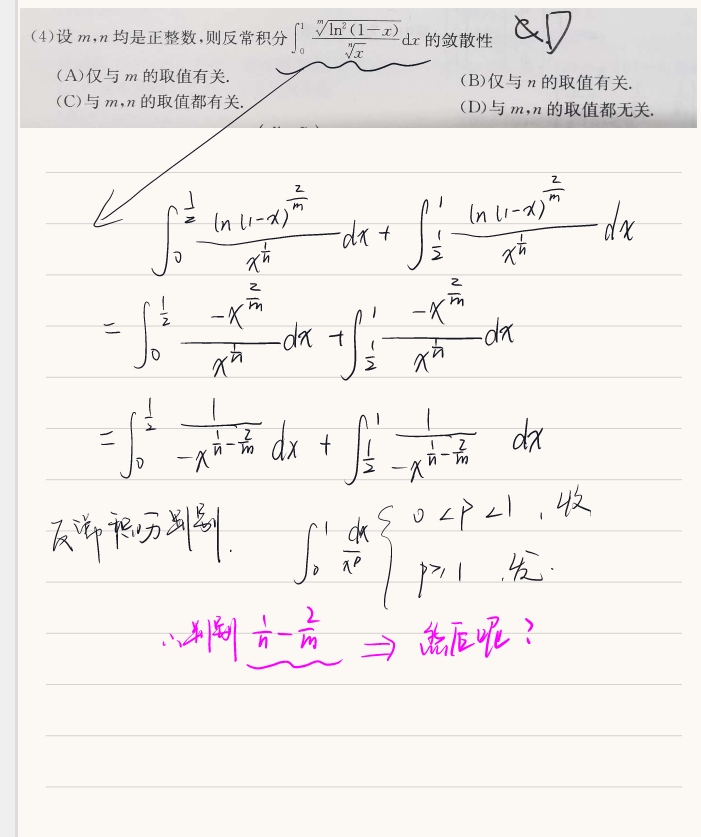 (4)设 m,n 均是正整数,则反常积分∫₀¹ ᵐ√ln²(1−x) / ⁿ√x dx 的敛散性 &D
(A)仅与 m 的取值有关. (B)仅与 n 的取值有关.
(C)与 m,n 的取值都有关. (D)与 m,n 的取值都无关.
∫₀^{1/2} ln(1-x)^{2/m} / x^{1/n} dx + ∫_{1/2}^1 ln(1-x)^{2/m} / x^{1/n} dx
= ∫₀^{1/2} -x^{2/m} / x^{1/n} dx + ∫_{1/2}^1 -x^{2/m} / x^{1/n} dx
= ∫₀^{1/2} 1 / -x^{1/n - 2/m} dx + ∫_{1/2}^1 1 / -x^{1/n - 2/m} dx
反常积分判别. ∫₀¹ dx / x^p { 0<p<1, 收
p≥1, 发.
∴判别 1/n - 2/m ⇒ 然后呢?